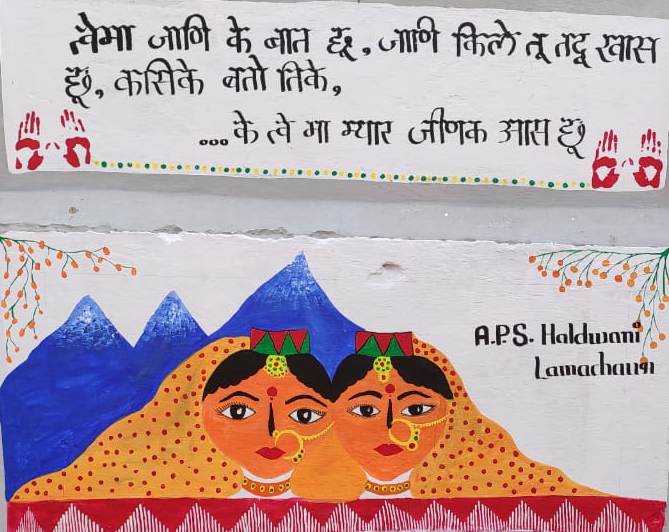 त्वेमा जाणि के बात छू, जाणि किले तू तदू खास
छू, कसिके बतो तिके,
...के त्वे मा म्यार जीणक आस छू
A.P.S. Haldwani
Lamachaur